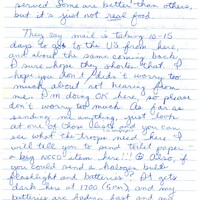 served. Some are better than others,
but it's just not real food.
They say mail is taking 10-15
days to get to the US from here,
and about the same coming back.
I sure hope they shorten that. I
hope you don't didn't worry too
much about not hearing from
me. I'm doing OK here, so please
don't worry too much. As far as
sending me anything, just look
at one of those lists and you can
see what the troops need here. I
will tell you to send toilet paper
a big NCO item here!!! Also, if
you could send a halogen bulb
flashlight and batteries? It gets
dark here at 1700 (5pm) and my
batteries are fading fast and any